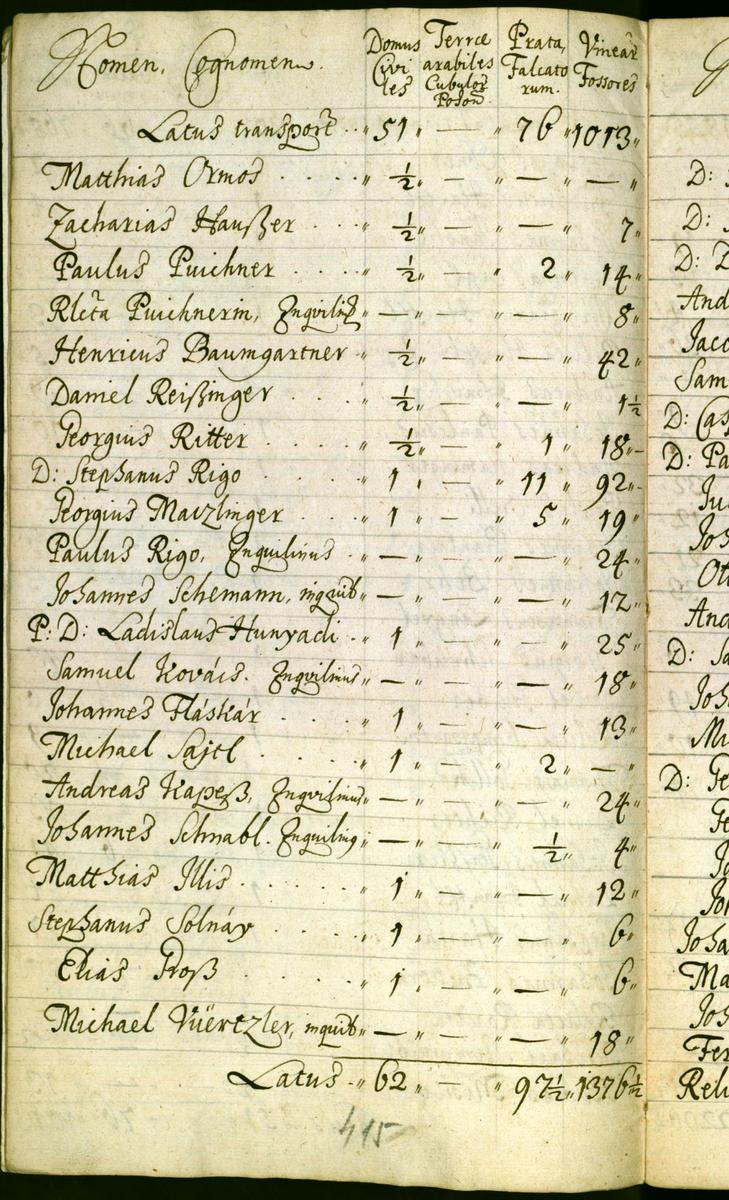 Nomen, Cognomen. Domus Civiles Terræ arabiles Cubulor Poson. Prata, Falcatorum. Vinear Fossores
Latus transport .. " 51 " — " 76 " 1013 "
Matthias Ormos .... " ½ " — " — " — "
Zacharias Haußer ... " ½ " — " — " 7 "
Paulus Puichner ... " ½ " — " 2 " 14 "
Rlcta Puichnerin, " — " — " — " 8 "
Henricus Baumgartner .. " ½ " — " — " 42 "
Daniel Reißinger ... " ½ " — " — " 1½
Georgius Ritter .... " ½ " — " 1 " 18 "
D: Stephanus Rigo ... " 1 " — " 11 " 92 "
Georgius Maizlinger ... " 1 " — " 5 " 19 "
Paulus Rigo, Inquilinus . " — " — " — " 24 "
Johannes Schemann, inquil " — " — " — " 12 "
P: D: Ladislaus Hunyadi .. " 1 " — " — " 25 "
Samuel Kovács. Inquilinus " — " — " — " 18 "
Johannes Fláskár ... " 1 " — " — " 13 "
Michael Sajtl ... " 1 " — " 2 " — "
Andreas Kapeß, Inquilinus " — " — " — " 24 "
Johannes Schnabl. " — " — " ½ " 4 "
Matthias Illis ..... " 1 " — " — " 12 "
Stephanus Solnáy .... " 1 " — " — " 6 "
Elias Proß ..... " 1 " — " — " 6 "
Michael Vüertzler, inquil " — " — " — " 18 "
Latus .. " 62 " — " 97½ " 1376½
415
D:
D:
D:
And
Jaco
Sam
D: Cas
D: Pa
Ju
Joh
Ott
And
D: Sa
Joh
Mi
D: Ge
Joha
Ma
Joh
Fer
Reli